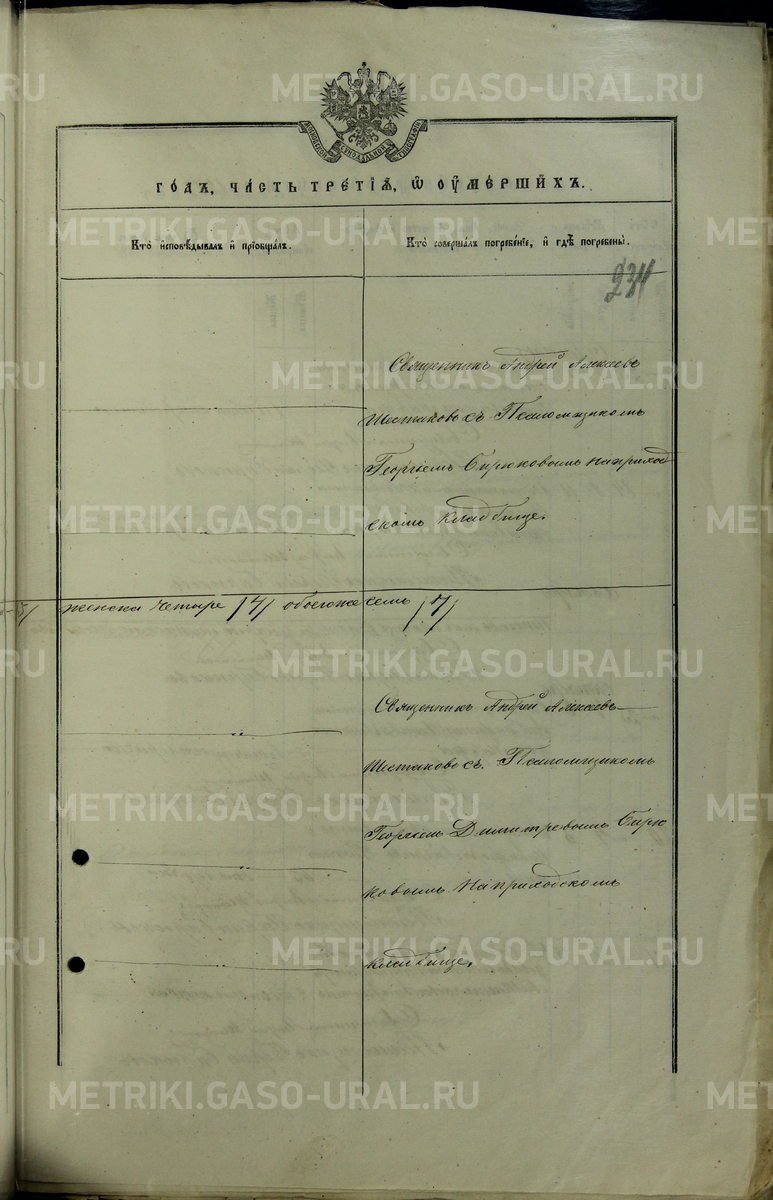 МОСКОВСКОЙ СѴНОДАЛЬНОЙ ТИПОГРАФІИ
ГО́ДЪ, ЧА́СТЬ ТРЕ́ТІѦ, Ѡ ОУМЕ́РШИХЪ.
Кто̀ и҆сповѣ́дывалъ и҆ прїѡбща́лъ.
Кто̀ соверша́лъ погребе́нїе, и҆ гдѣ̀ погребены̀.
234
Священникъ Андрей Алексѣевъ
Шестаковъ съ Псаломщикомъ
Георгіемъ Бирюковымъ на приход
скомъ кладбище.
женска четыре /4/ обоегоже семь /7/
Священникъ Андрей Алексѣевъ
Шестаковъ съ Псаломщикомъ
Георгіемъ Димитревымъ Бирю
ковымъ на приходскомъ
кладбище.
METRIKI.GASO-URAL.RU